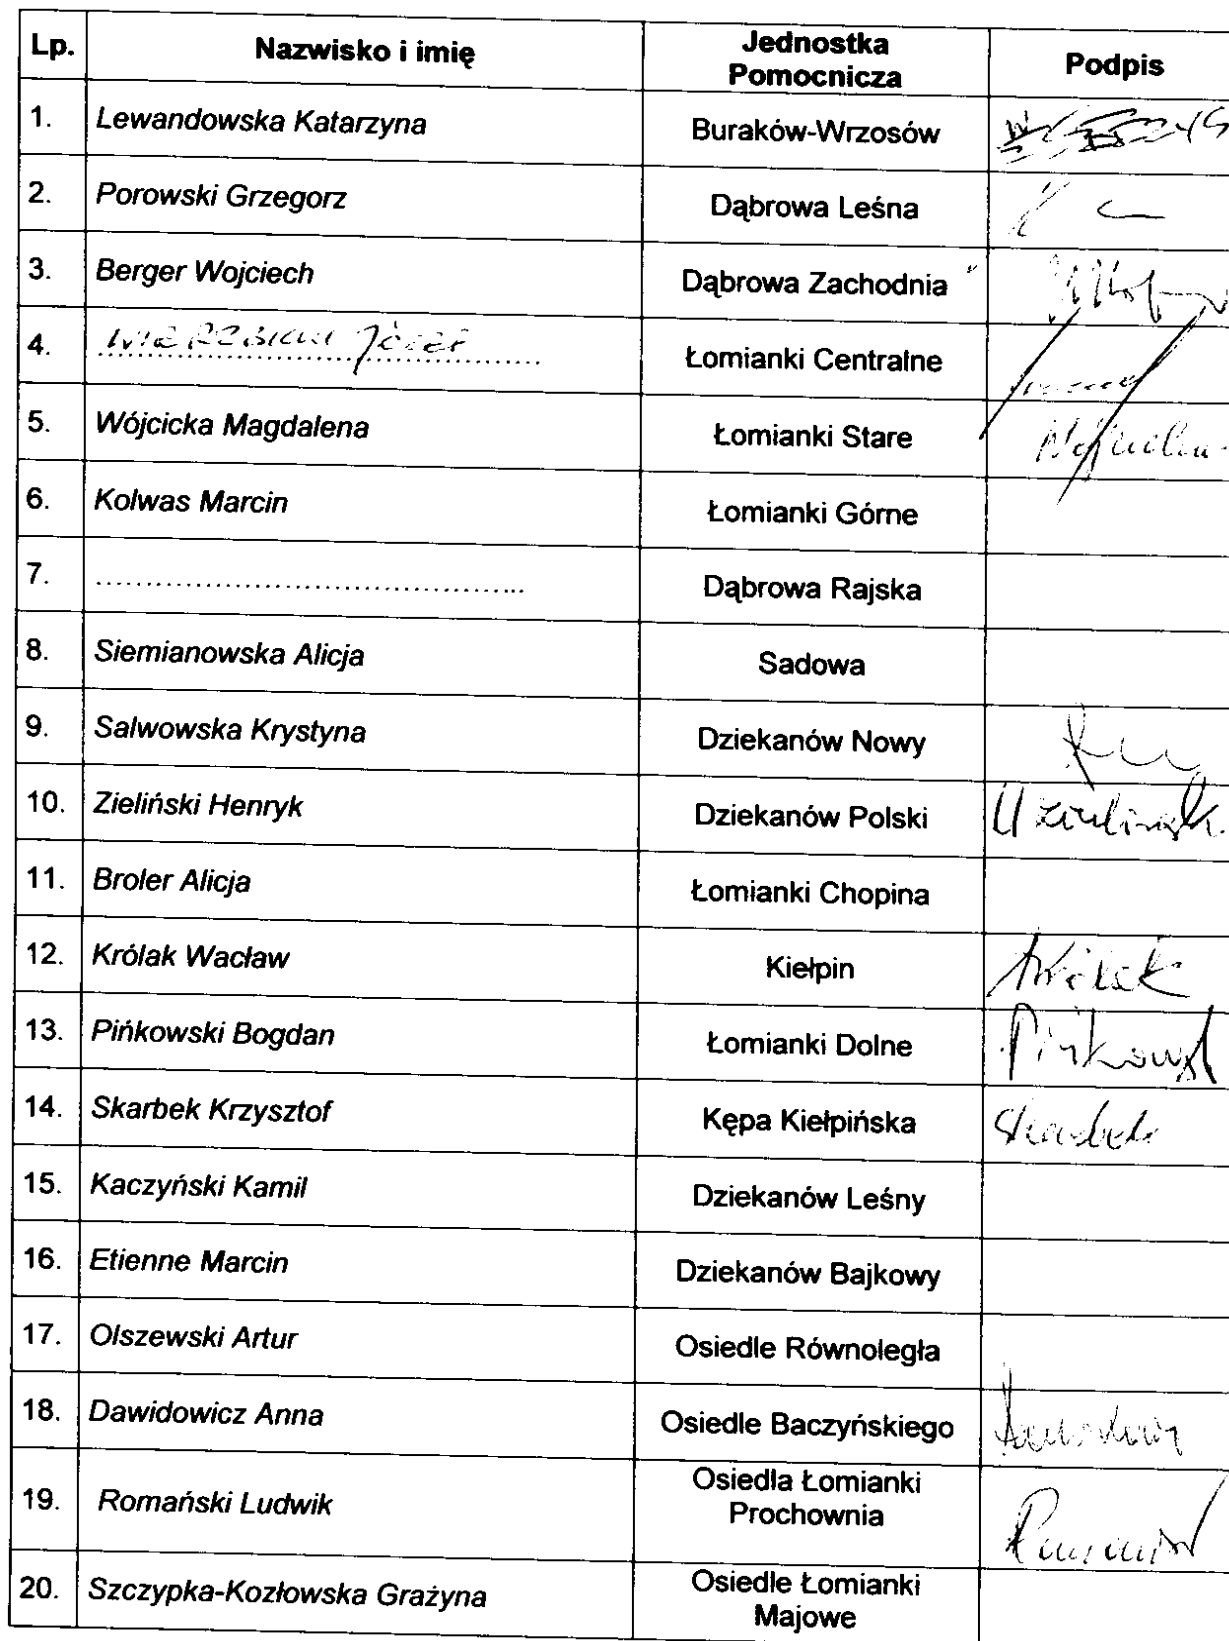 Lp. Nazwisko i imię Jednostka Pomocnicza Podpis
1. Lewandowska Katarzyna Buraków-Wrzosów
2. Porowski Grzegorz Dąbrowa Leśna
3. Berger Wojciech Dąbrowa Zachodnia
4. Józef Łomianki Centralne
5. Wójcicka Magdalena Łomianki Stare
6. Kolwas Marcin Łomianki Górne
7. ........................................... Dąbrowa Rajska
8. Siemianowska Alicja Sadowa
9. Salwowska Krystyna Dziekanów Nowy
10. Zieliński Henryk Dziekanów Polski
11. Broler Alicja Łomianki Chopina
12. Królak Wacław Kiełpin Królak
13. Pińkowski Bogdan Łomianki Dolne
14. Skarbek Krzysztof Kępa Kiełpińska Skarbek
15. Kaczyński Kamil Dziekanów Leśny
16. Etienne Marcin Dziekanów Bajkowy
17. Olszewski Artur Osiedle Równoległa
18. Dawidowicz Anna Osiedle Baczyńskiego
19. Romański Ludwik Osiedla Łomianki
Prochownia
20. Szczypka-Kozłowska Grażyna Osiedle Łomianki
Majowe